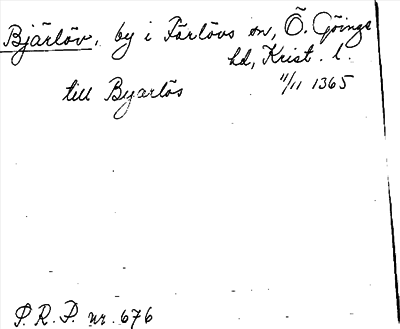 Bjärlöv, by i Färlövs sn, Ö. Göinge
hd, Krist. l.
till Byarlös 11/11 1365
P.R.P. nr. 676